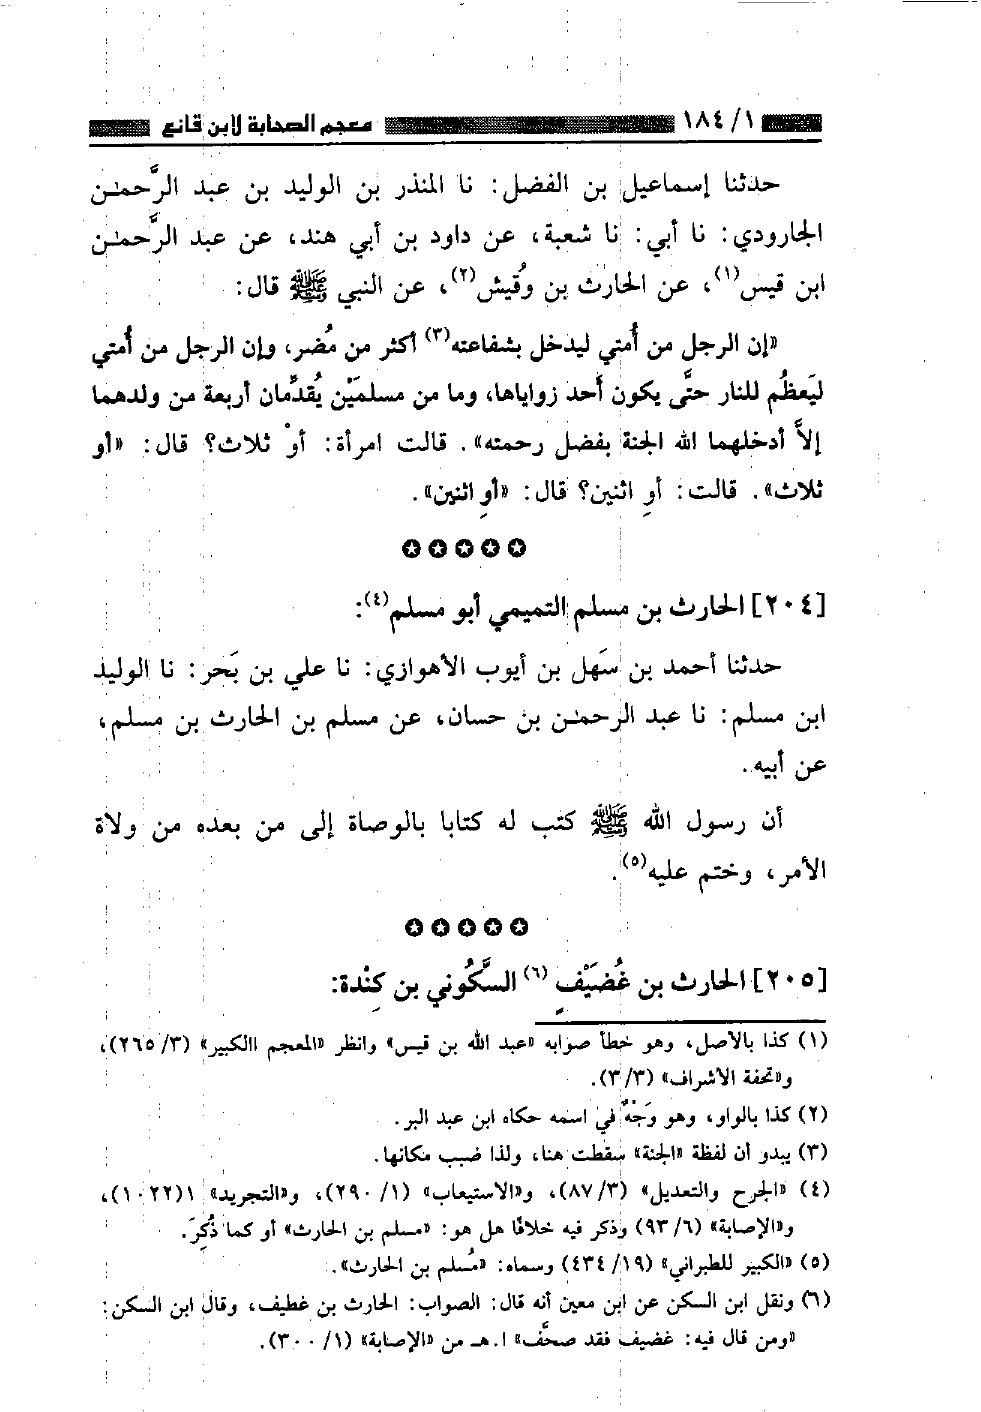 ١ / ١٨٤ معجم الصحابة لابن قانع
حدثنا إسماعيل بن الفضل: نا المنذر بن الوليد بن عبد الرَّحمٰن
الجارودي: نا أبي: نا شعبة، عن داود بن أبي هند، عن عبد الرَّحمٰن
ابن قيس(١)، عن الحارث بن وُقيش(٢)، عن النبي ﷺ قال:
«إن الرجل من أُمتي ليدخل بشفاعته(٣) أكثر من مُضر، وإن الرجل من أُمتي
ليَعظُم للنار حتَّى يكون أَحد زواياها، وما من مسلمَيْن يُقدِّمان أربعة من ولدهما
إلاَّ أدخلهما الله الجنة بفضل رحمته». قالت امرأة: أوْ ثلاث؟ قال: «أو
ثلاث». قالت: أوِ اثنين؟ قال: «أوِ اثنين».
[٢٠٤] الحارث بن مسلم التميمي أبو مسلم(٤):
حدثنا أحمد بن سَهل بن أيوب الأهوازي: نا علي بن بَحر: نا الوليد
ابن مسلم: نا عبد الرحمٰن بن حسان، عن مسلم بن الحارث بن مسلم،
عن أبيه.
أن رسول الله ﷺ كتب له كتابا بالوصاة إلى من بعده من ولاة
الأمر، وختم عليه(٥).
[٢٠٥] الحارث بن غُضَيْفٍ(٦) السَّكُوني بن كِنْدة:
(١) كذا بالأصل، وهو خطأ صوابه «عبد الله بن قيس» وانظر «المعجم االكبير» (٣/ ٢٦٥)،
و«تحفة الأشراف» (٣/ ٣).
(٢) كذا بالواو، وهو وَجْهٌ في اسمه حكاه ابن عبد البر.
(٣) يبدو أن لفظة «الجنة» سقطت هنا، ولذا ضبب مكانها.
(٤) «الجرح والتعديل» (٣/ ٨٧)، و«الاستيعاب» (١/ ٢٩٠)، و«التجريد» ١(١٠٢٢)،
و«الإصابة» (٦/ ٩٣) وذكر فيه خلافًا هل هو: «مسلم بن الحارث» أو كما ذُكِرَ.
(٥) «الكبير للطبراني» (١٩/ ٤٣٤) وسماه: «مُسلم بن الحارث».
(٦) ونقل ابن السكن عن ابن معين أنه قال: الصواب: الحارث بن غطيف، وقال ابن السكن:
«ومن قال فيه: غضيف فقد صحَّف» ا.هـ من «الإصابة» (١/ ٣٠٠).